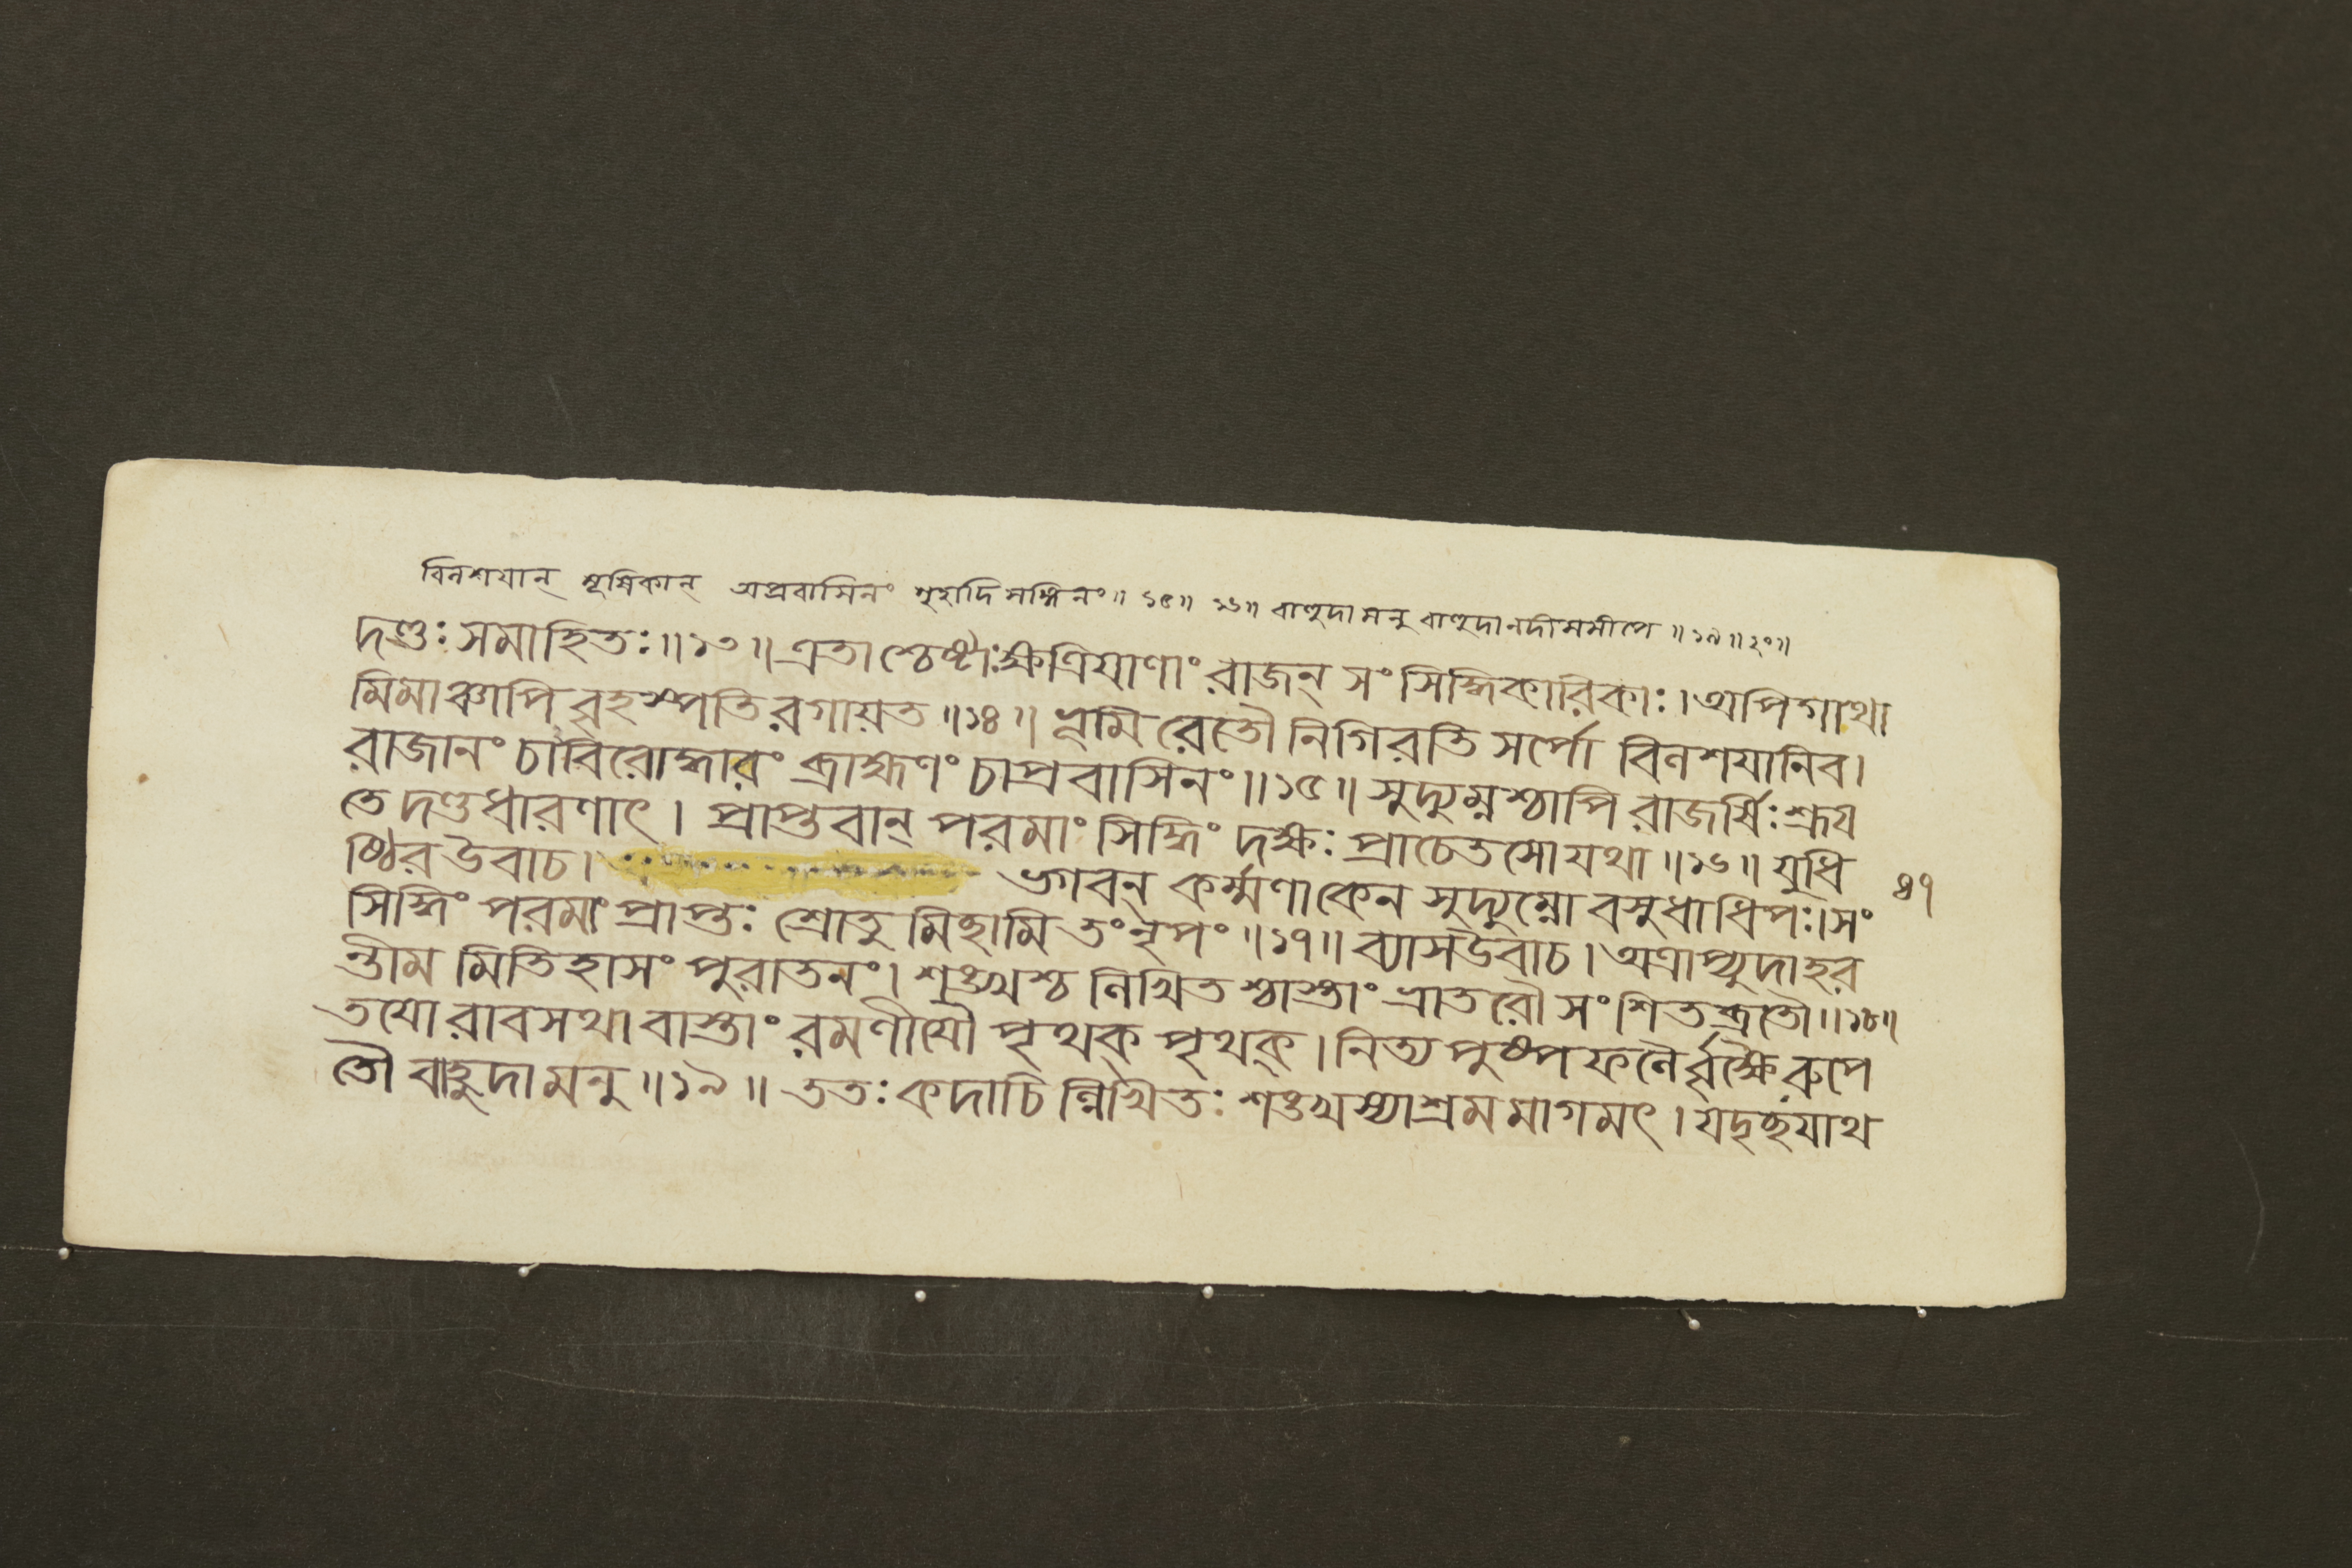 বিলশযান্ মূষিকান্ অপ্রবাসিনং গৃহাদিসঙ্গিনং॥ ১৫॥ ১৬॥ বাহুদামনু বাহুদানদীসমীপে ॥১৯॥২০॥
দণ্ডঃ সমাহিতঃ॥১৩॥ এতাশ্চেষ্টাঃ ক্ষত্রিযাণাং রাজন্ সংসিদ্ধিকারিকাঃ। অপিগাথা
মিমাঞ্চাপি বৃহস্পতিরগায়ত ॥১৪॥ ভূমিরেতৌ নিগিরতি সর্পো বিলশযানিব।
রাজানং চাবিরোদ্ধারং ব্রাহ্মণং চাপ্রবাসিনং॥১৫॥ সুদ্যুম্নশ্চাপি রাজর্ষিঃ শ্রূয
তে দণ্ডধারণাৎ। প্রাপ্তবান্ পরমাং সিদ্ধিং দক্ষঃ প্রাচেতসো যথা॥১৬॥ যুধি
ষ্ঠির উবাচ। ভগবন্ কর্ম্মণাকেন সুদ্যুম্নো বসুধাধিপঃ। সং
সিদ্ধিং পরমাং প্রাপ্তঃ শ্রোতুমিচ্ছামি তং নৃপং ॥১৭॥ ব্যাসউবাচ। অত্রাপ্যুদাহর
ন্তীমমিতিহাসং পুরাতনং। শঙ্খশ্চ লিখিতশ্চাস্তাং ভ্রাতরৌ সংশিতব্রতৌ॥১৮॥
তযোরাবসথাবাস্তাং রমণীযৌ পৃথক্ পৃথক্। নিত্যপুষ্পফলৈর্বৃক্ষৈরুপে
তৌ বাহুদামনু॥১৯॥ ততঃ কদাচিল্লিখিতঃ শঙ্খস্যাশ্রমমাগমৎ। যদৃচ্ছযাথ
৪৭